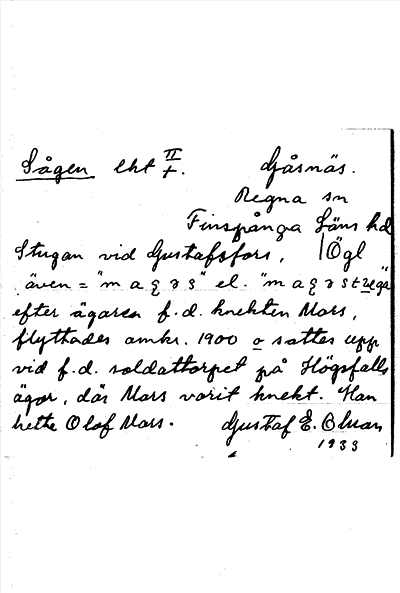 Sågen ekt II/I. Gåsnäs.
Regna sn
Finspånga Läns hd
Stugan vid Gustafsfors, | Ögl
även = "m a ɽ ə s" el. "m a ɽ ə s t ɯ g a"
efter ägaren f.d. knekten Mars,
flyttades omkr. 1900 o sattes upp
vid f.d. soldattorpet på Högsfalls
ägor, där Mars varit knekt. Han
hette Olof Mars. Gustaf E. Oluan
1933